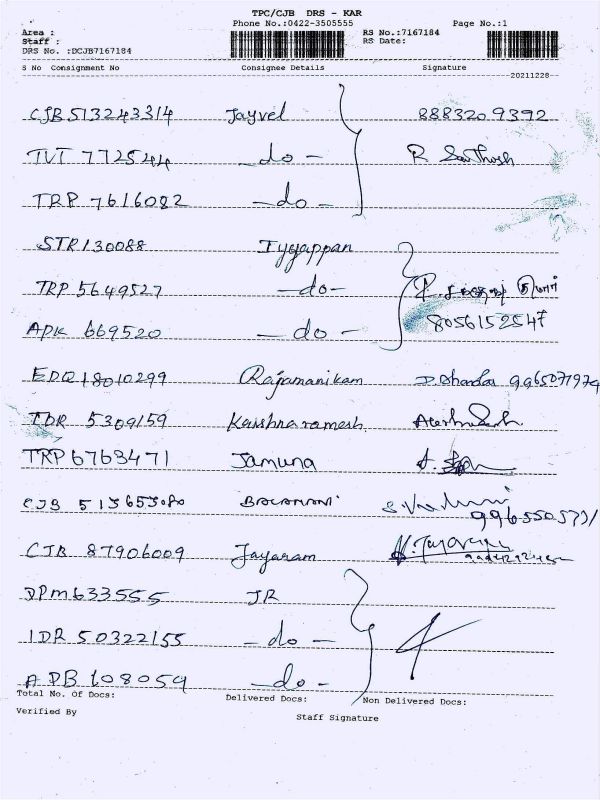 TPC/CJB DRS - KAR
Phone No.:0422-3505555 Page No.:1
Area : RS No.:7167184
Staff : RS Date:
DRS No. :DCJB7167184
S No Consignment No Consignee Details Signature
20211228
CJB513243314 Jayvel 8883209392
TVT 7725444 -do- R Santhosh
TRP 7616082 -do-
STR130088 Iyyappan
TRP 5649527 -do- P.
APK 669520 -do- 8056152547
EDQ18010299 Rajamanikam 9965071979
IDR 5309159 Krishnaramesh
TRP6763471 Jamuna
CJB 513653080 BALAMANI
CJB 87906009 Jayaram
DPM633555 JR
IDR 50322155 -do-
ADB 108059 -do-
Total No. Of Docs: Delivered Docs: Non Delivered Docs:
Verified By Staff Signature